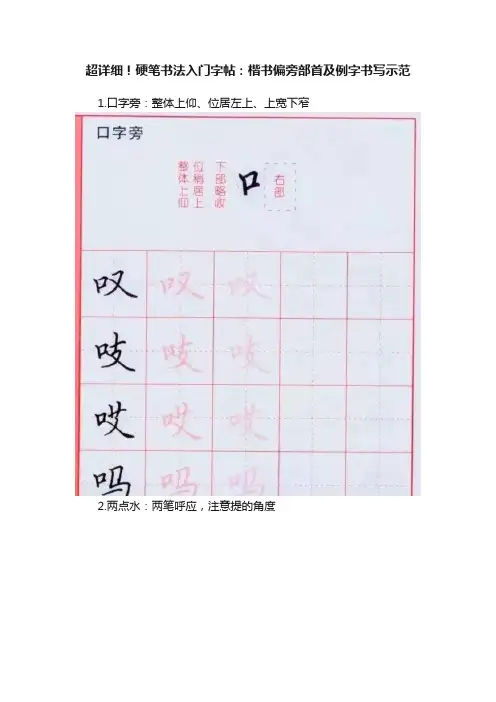 超详细！硬笔书法入门字帖：楷书偏旁部首及例字书写示范
1.口字旁：整体上仰、位居左上、上宽下窄
口字旁
整体上仰
位稍居上
下部略收
口
右部
叹 叹 叹
吱 吱 吱
哎 哎 哎
吗 吗 吗
2.两点水：两笔呼应，注意提的角度